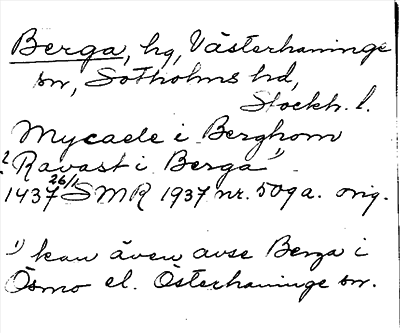 Berga, hg, Västerhaninge
sn, Sotholms hd,
Stockh. l.
Mycaele i Berghom
? Ravast i Berga ¹⁾
1437 26/1 SMR 1937 nr. 509a. orig.
¹⁾ kan även avse Berga i
Ösmo el. Österhaninge sn.